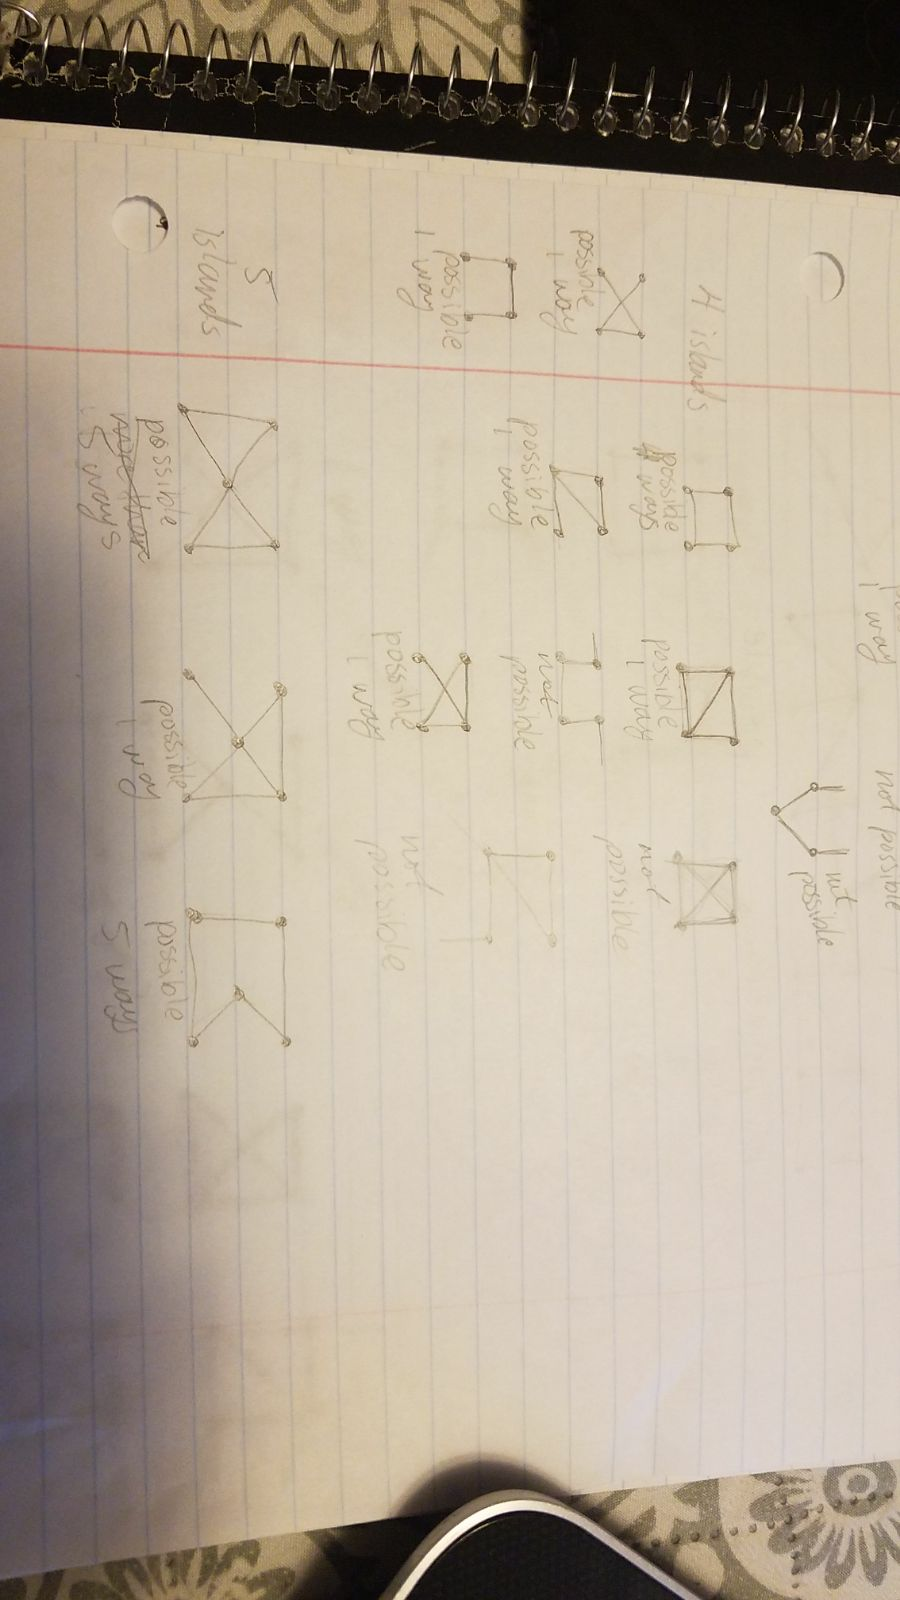 i way
not possible
not
possible
4 islands
possible
4 ways
possible
1 way
not
possible
possible
1 way
possible
1 way
not
possible
possible
1 way
possible
1 way
not
possible
5
islands
possible
5 ways
possible
1 way
possible
5 ways